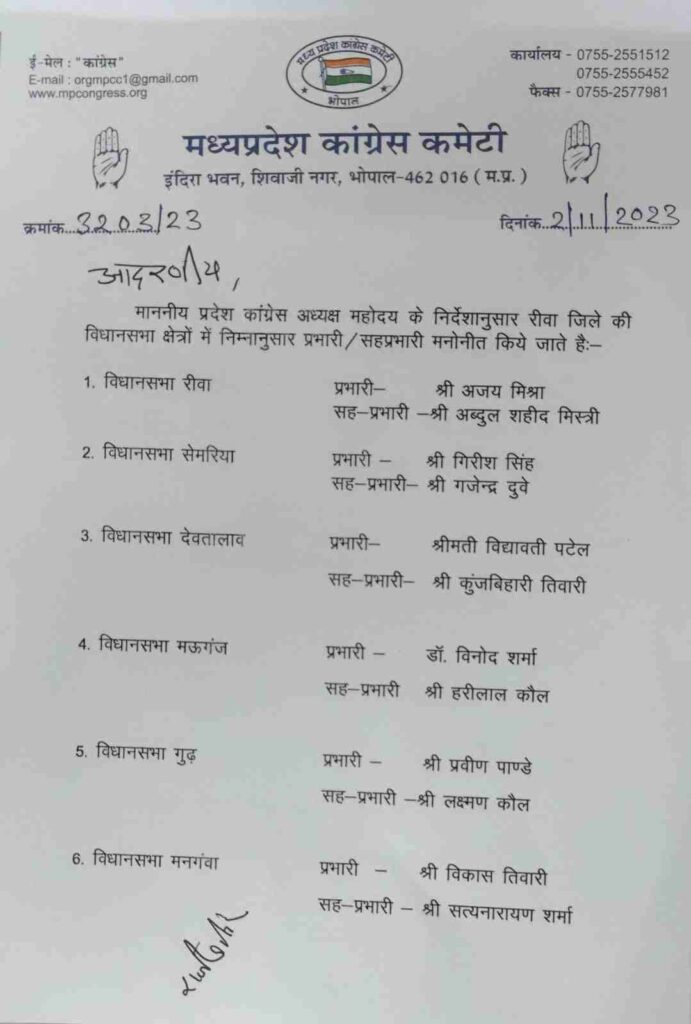 ई-मेल : "कांग्रेस"
E-mail : orgmpcc1@gmail.com
www.mpcongress.org
मध्य प्रदेश कांग्रेस कमेटी
भोपाल
कार्यालय - 0755-2551512
0755-2555452
फैक्स - 0755-2577981
मध्यप्रदेश कांग्रेस कमेटी
इंदिरा भवन, शिवाजी नगर, भोपाल-462 016 ( म.प्र. )
क्रमांक...3203/23
दिनांक...2/11/2023
आदरणीय,
माननीय प्रदेश कांग्रेस अध्यक्ष महोदय के निर्देशानुसार रीवा जिले की
विधानसभा क्षेत्रों में निम्नानुसार प्रभारी/सहप्रभारी मनोनीत किये जाते है:–
1. विधानसभा रीवा प्रभारी– श्री अजय मिश्रा
सह–प्रभारी –श्री अब्दुल शहीद मिस्त्री
2. विधानसभा सेमरिया प्रभारी – श्री गिरीश सिंह
सह–प्रभारी– श्री गजेन्द्र दुवे
3. विधानसभा देवतालाव प्रभारी– श्रीमती विद्यावती पटेल
सह–प्रभारी– श्री कुंजबिहारी तिवारी
4. विधानसभा मऊगंज प्रभारी – डॉ. विनोद शर्मा
सह–प्रभारी श्री हरीलाल कौल
5. विधानसभा गुढ़ प्रभारी – श्री प्रवीण पाण्डे
सह–प्रभारी –श्री लक्ष्मण कौल
6. विधानसभा मनगंवा प्रभारी – श्री विकास तिवारी
सह–प्रभारी – श्री सत्यनारायण शर्मा